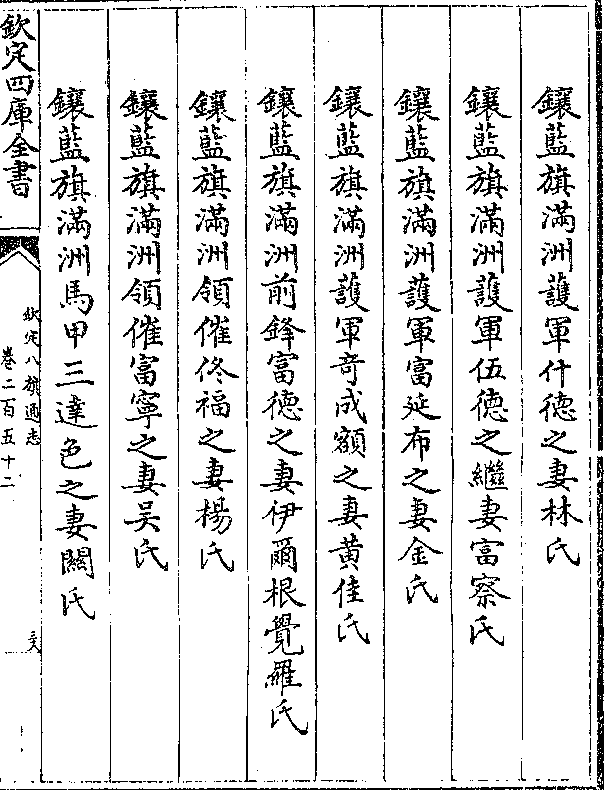 鑲藍旗滿洲護軍什德之妻林氏
鑲藍旗滿洲護軍伍德之繼妻富察氏
鑲藍旗滿洲護軍富延布之妻金氏
鑲藍旗滿洲護軍竒成額之妻黄佳氏
鑲藍旗滿洲前鋒富德之妻伊爾根覺羅氏
鑲藍旗滿洲領催佟福之妻楊氏
鑲藍旗滿洲領催富寧之妻吴氏
鑲藍旗滿洲馬甲三達色之妻關氏
欽定四庫全書
欽定八旗通志
卷二百五十二